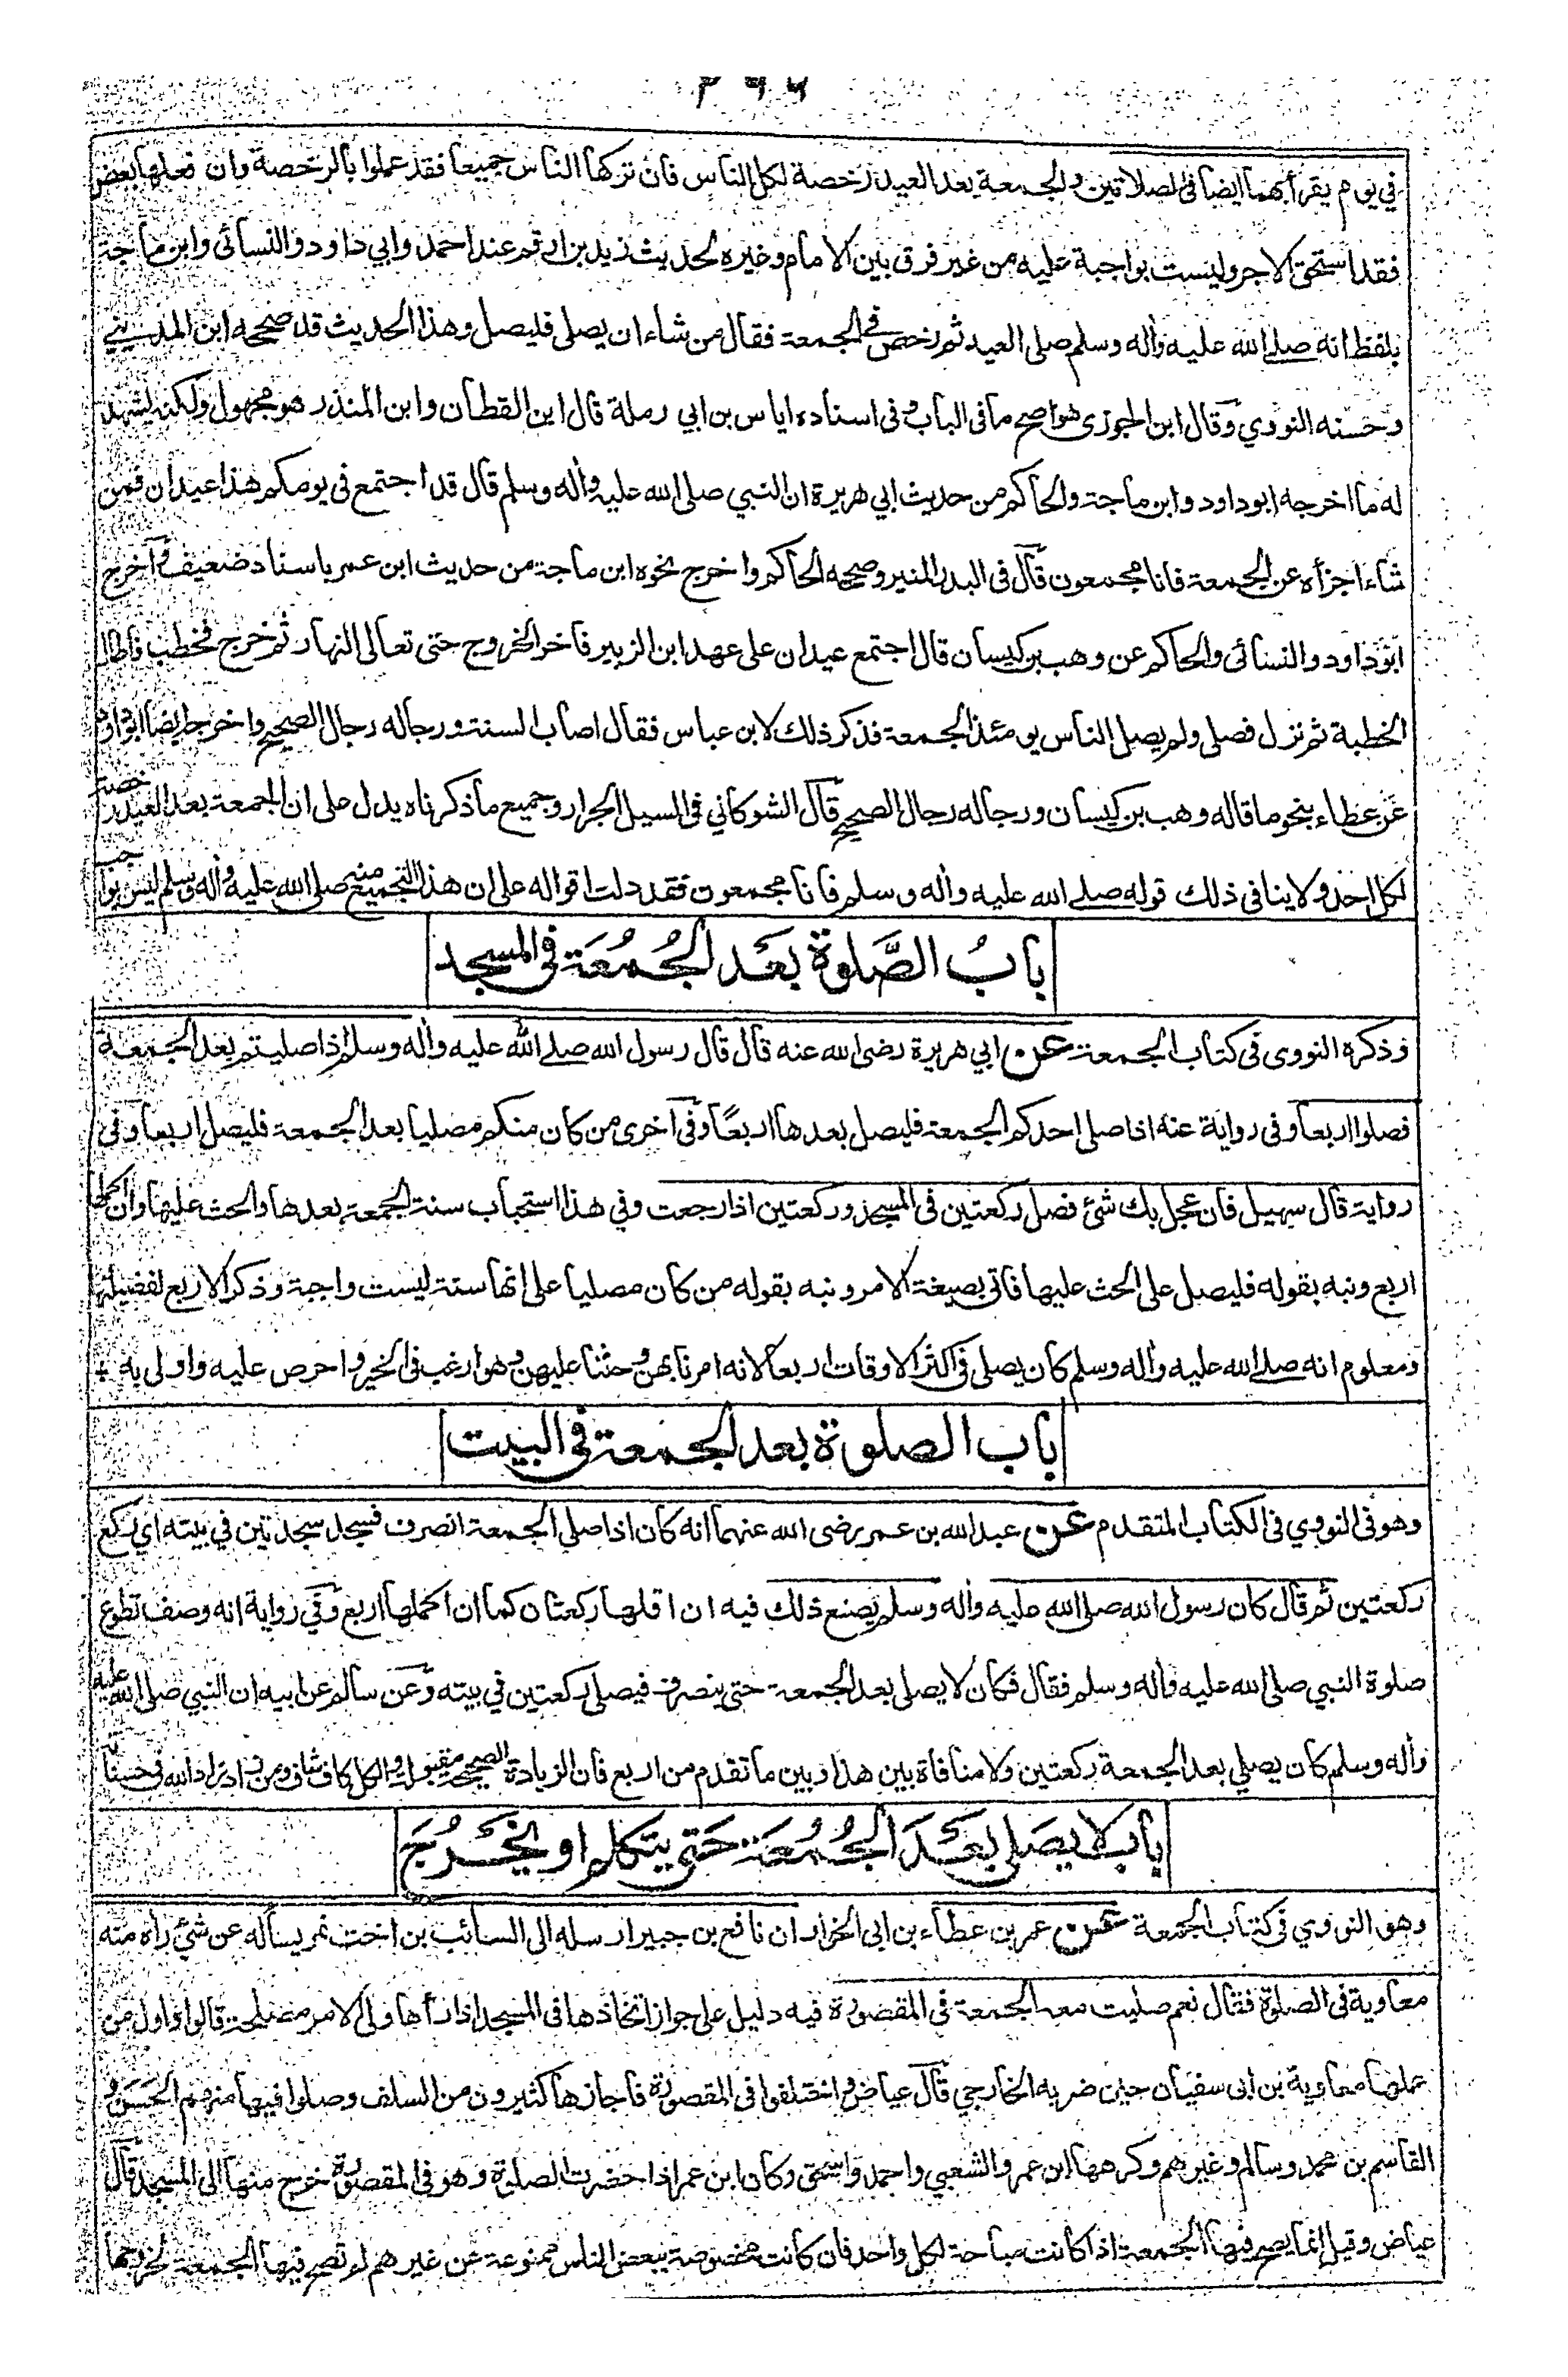 في يوم يقرأ بهما ايضا فى الصلاتين والجمعة بعد العيد رخصة لكل الناس فان تركها الناس جميعا فقد عملوا بالرخصة وان فعلها بعض
فقد استحق الاجر وليست بواجبة عليه من غير فرق بين الامام وغيره لحديث زيد بن ارقم عند احمد وابي داود والنسائى وابن ماجة
بلفظ انه صلى الله عليه وأله وسلم صلى العيد ثم رخص فى الجمعة فقال من شاء ان يصلى فليصل وهذا الحديث قد صححه ابن المديني
وحسنه النووي وقال ابن الجوزى هو اصح ما فى الباب وفى اسناده اياس بن ابي رملة قال ابن القطان وابن المنذر هو مجهول ولكنه يشهد
له ما اخرجه ابو داود وابن ماجة والحاكم من حديث ابي هريرة ان النبي صلى الله عليه وأله وسلم قال قد اجتمع فى يومكم هذا عيدان فمن
شاء اجزأه عن الجمعة فانا مجمعون قال فى البدر المنير وصححه الحاكم واخرج نحوه ابن ماجة من حديث ابن عمر باسناد ضعيف واخرج
ابو داود والنسائى والحاكم عن وهب بن كيسان قال اجتمع عيدان على عهد ابن الزبير فاخر الخروج حتى تعالى النهار ثم خرج فخطب فاطال
الخطبة ثم نزل فصلى ولم يصل الناس يومئذ الجمعة فذكر ذلك لابن عباس فقال اصاب السنة ورجاله رجال الصحيح واخرجه ايضا ابو داود
عن عطاء بنحو ما قاله وهب بن كيسان ورجاله رجال الصحيح قال الشوكاني فى السيل الجرار وجميع ما ذكرناه يدل على ان الجمعة بعد العيد رخصة
لكل احد ولا ينافى ذلك قوله صلى الله عليه وأله وسلم فانا مجمعون فقد دلت اقواله على ان هذا التجميع منه صلى الله عليه وأله وسلم ليس بواجب
باب الصَّلوة بعَد الجُمُعَة فى المسجد
وذكره النووى فى كتاب الجمعة عن ابي هريرة رضى الله عنه قال قال رسول الله صلى الله عليه وأله وسلم اذا صليتم بعد الجمعة
فصلوا اربعا وفى رواية عنه اذا صلى احدكم الجمعة فليصل بعدها اربعًا وفى اخرى من كان منكم مصليا بعد الجمعة فليصل اربعا وفى
رواية قال سهيل فان عجل بك شئ فصل ركعتين فى المسجد وركعتين اذا رجعت وفي هذا استحباب سنة الجمعة بعدها والحث عليها وان اكملها
اربع ونبه بقوله فليصل على الحث عليها فاتى بصيغة الامر ونبه بقوله من كان مصليا على انها سنة ليست واجبة وذكر الاربع لفضيلتها
ومعلوم انه صلى الله عليه وأله وسلم كان يصلى فى اكثر الاوقات اربعا لانه امرنا بهن وحثنا عليهن وهو ارغب فى الخير واحرص عليه واولى به +
باب الصلوة بعد الجمعة فى البيت
وهو فى النووي فى الكتاب المتقدم عن عبد الله بن عمر رضى الله عنهما انه كان اذا صلى الجمعة انصرف فسجد سجدتين في بيته اي ركع
ركعتين ثم قال كان رسول الله صلى الله عليه وأله وسلم يصنع ذلك فيه ان اقلها ركعتان كما ان اكملها اربع وفي رواية انه وصف تطوع
صلوة النبي صلى الله عليه وأله وسلم فقال فكان لا يصلى بعد الجمعة حتى ينصرف فيصلى ركعتين في بيته وعن سالم عن ابيه ان النبي صلى الله عليه
وأله وسلم كان يصلي بعد الجمعة ركعتين ولا منافاة بين هذا وبين ما تقدم من اربع فان الزيادة الصحيحة مقبولة والكل كاف شاف ومن زاد زاد الله فى حسناته
باب لا يصَلى بعَدَ الجُمُعَة حَتى يتكلم او يخَرُجَ
وهو النووي فى كتاب الجمعة عن عمر بن عطاء بن ابى الخوار ان نافع بن جبير ارسله الى السائب بن اخت نمر يسأله عن شئ رأه منه
معاوية فى الصلوة فقال نعم صليت معه الجمعة فى المقصورة فيه دليل على جواز اتخاذها فى المسجد اذا رأها ولى الامر مصلحة قالوا واول من
عملها معاوية بن ابى سفيان حين ضربه الخارجي قال عياض واختلفوا فى المقصورة فاجازها كثيرون من السلف وصلوا فيها منهم الحَسَن و
القاسم بن محمد وسالم وغيرهم وكرهها ابن عمر والشعبي واحمد واسحق وكان ابن عمر اذا حضرت الصلوة وهو فى المقصورة خرج منها الى المسجد قال
عياض وقيل انما يصح فيها الجمعة اذا كانت مباحة لكل واحد فان كانت مخصوصة ببعض الناس ممنوعة عن غيرهم لم تصح فيها الجمعة لخروجها